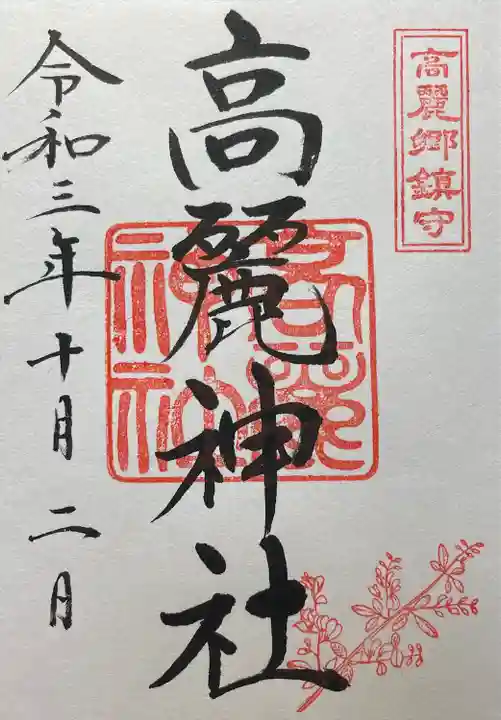 高麗郷鎮守
高麗神社
高麗
神社
令和三年十月二日